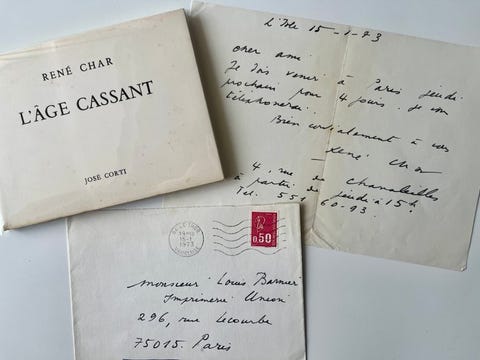 RENÉ CHAR
L'ÂGE CASSANT
JOSÉ CORTI
L'Isle 15-1-73
cher ami
Je dois venir à Paris jeudi
prochain pour 4 jours. Je vous
téléphonerai.
Bien cordialement à vous
René Char
4, rue de Chanaleilles
à partir de jeudi à 15h
Tel. 551 60-93.
15-1
1973
0,50
monsieur Louis Barnier
Imprimerie Union
296, rue Lecourbe
75015. Paris